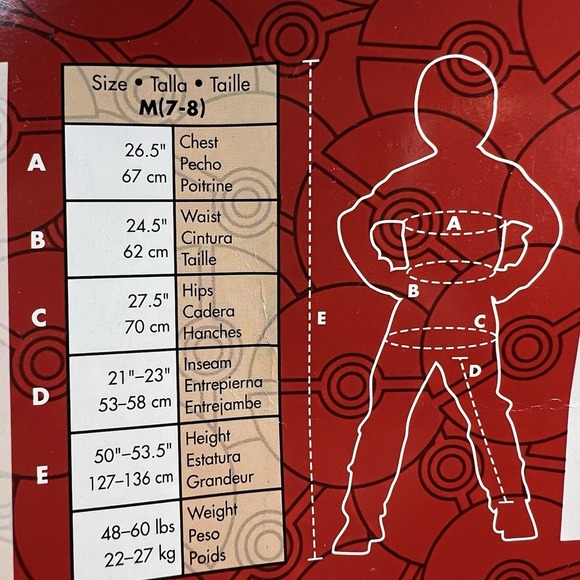 Size • Talla • Taille
M(7-8)
A
26.5"
67 cm
Chest
Pecho
Poitrine
B
24.5"
62 cm
Waist
Cintura
Taille
C
27.5"
70 cm
Hips
Cadera
Hanches
D
21"–23"
53–58 cm
Inseam
Entrepierna
Entrejambe
E
50"–53.5"
127–136 cm
Height
Estatura
Grandeur
48–60 lbs
22–27 kg
Weight
Peso
Poids
A
B
C
D
E